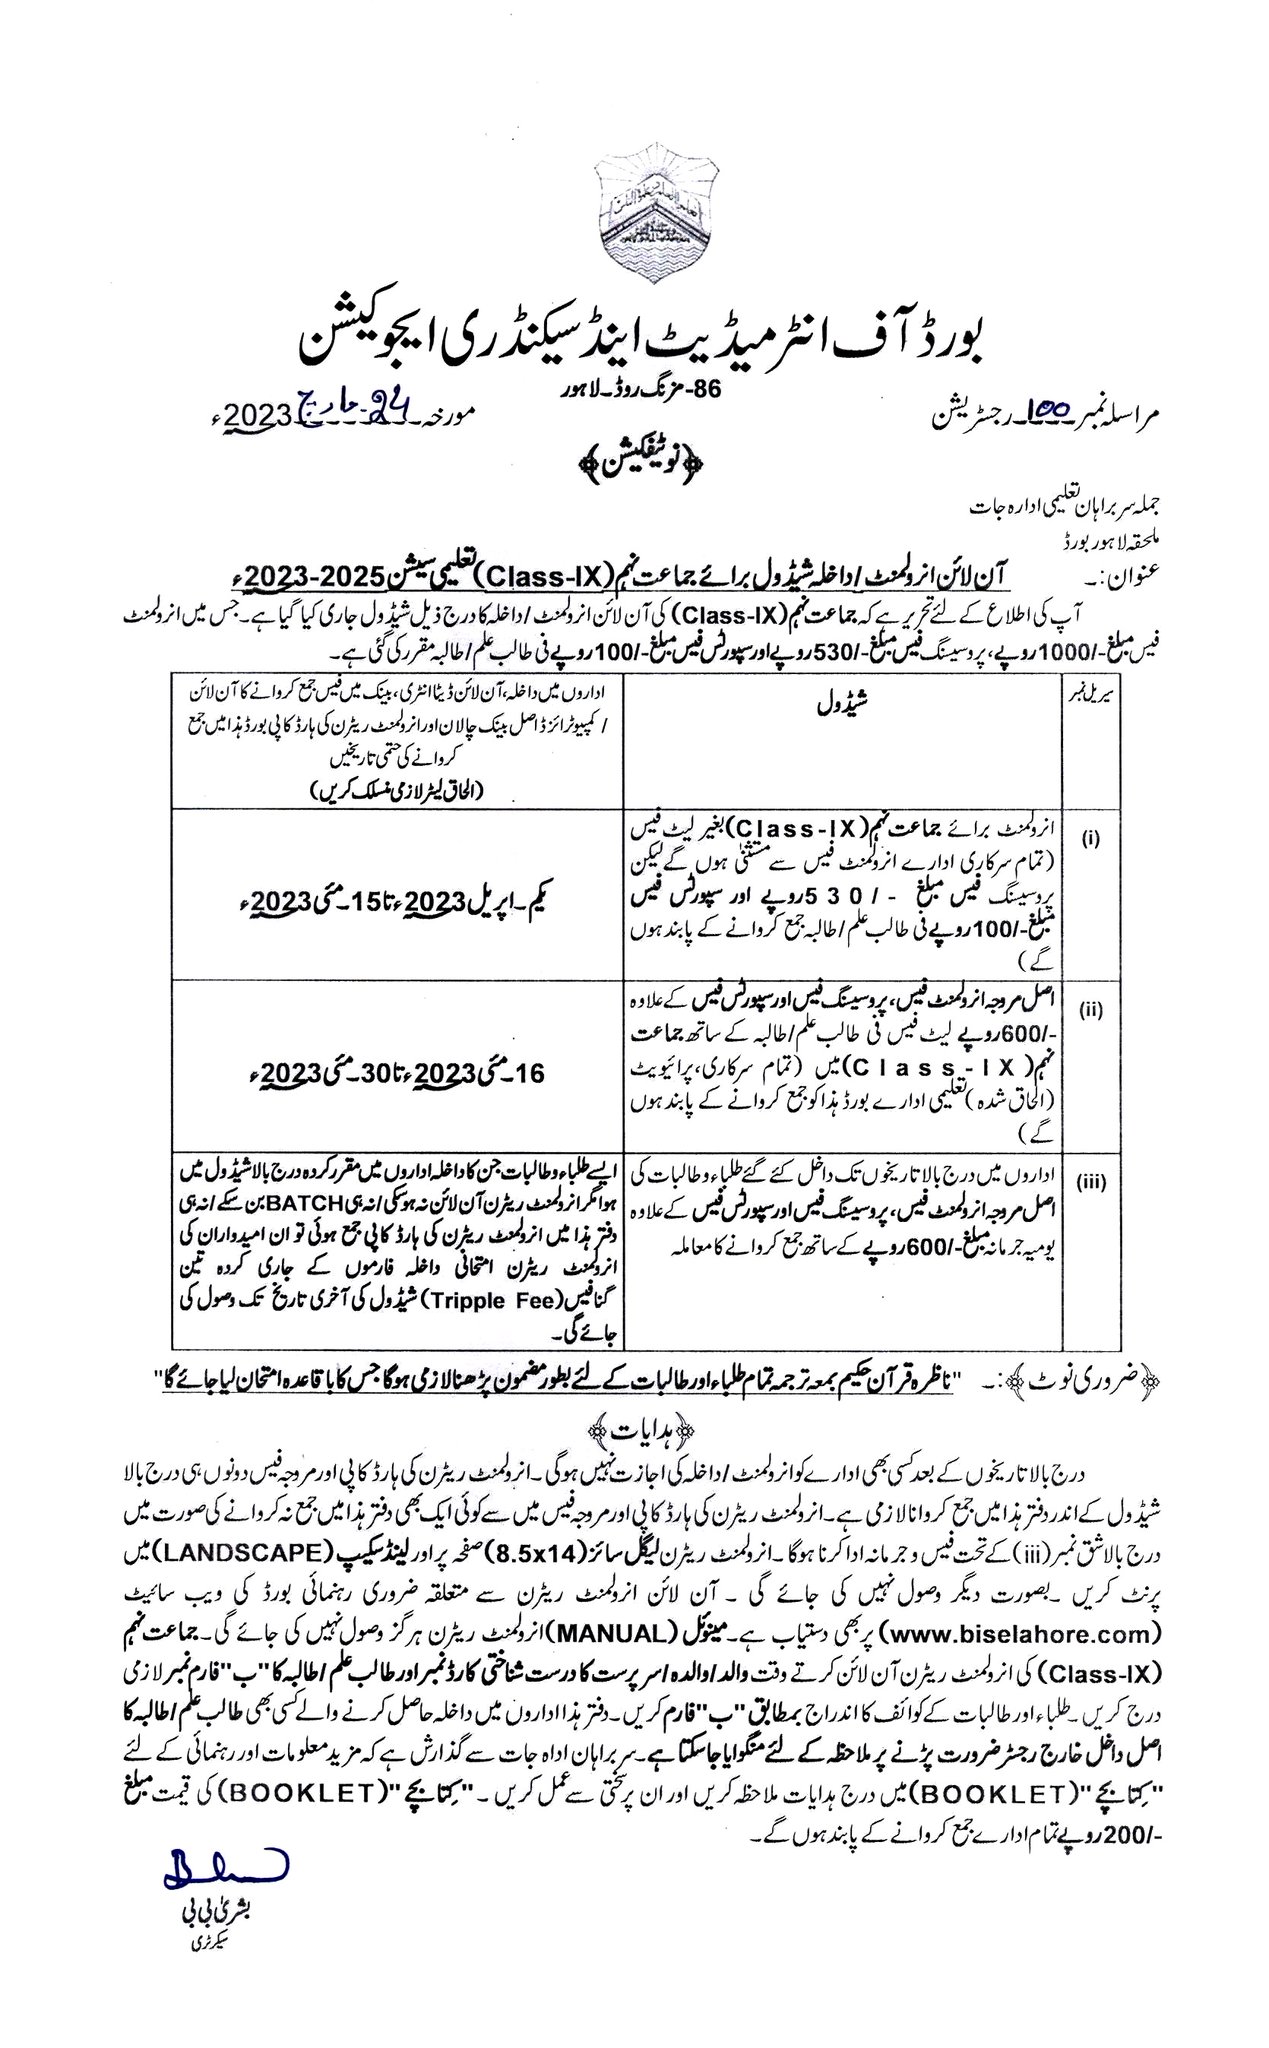 بورڈ آف انٹرمیڈیٹ اینڈ سیکنڈری ایجوکیشن
86-مزنگ روڈ۔لاہور
مراسلہ نمبر 100 رجسٹریشن
مورخہ 24-مارچ 2023ء
﴿نوٹیفکیشن﴾
جملہ سربراہان تعلیمی ادارہ جات
ملحقہ لاہور بورڈ
عنوان:۔ آن لائن انرولمنٹ/داخلہ شیڈول برائے جماعت نہم(Class-IX) تعلیمی سیشن 2025-2023ء
آپ کی اطلاع کے لئے تحریر ہے کہ جماعت نہم(Class-IX) کی آن لائن انرولمنٹ/داخلہ کا درج ذیل شیڈول جاری کیا گیا ہے۔جس میں انرولمنٹ
فیس مبلغ-/1000روپے، پروسیسنگ فیس مبلغ-/530روپے اور سپورٹس فیس مبلغ-/100روپے فی طالب علم/طالبہ مقرر کی گئی ہے۔
سیریل نمبر
شیڈول
اداروں میں داخلہ،آن لائن ڈیٹا انٹری، بینک میں فیس جمع کروانے کا آن لائن
/کمپیوٹرائزڈ اصل بینک چالان اور انرولمنٹ ریٹرن کی ہارڈ کاپی بورڈ ہذا میں جمع
کروانے کی حتمی تاریخیں
(الحاق لیٹر لازمی منسلک کریں)
(i)
انرولمنٹ برائے جماعت نہم(Class-IX)بغیر لیٹ فیس
(تمام سرکاری ادارے انرولمنٹ فیس سے مستثنیٰ ہوں گے لیکن
پروسیسنگ فیس مبلغ -/530روپے اور سپورٹس فیس
مبلغ-/100روپے فی طالب علم/طالبہ جمع کروانے کے پابند ہوں
گے)
یکم۔اپریل 2023ء تا 15۔مئی 2023ء
(ii)
اصل مروجہ انرولمنٹ فیس، پروسیسنگ فیس اور سپورٹس فیس کے علاوہ
-/600روپے لیٹ فیس فی طالب علم/طالبہ کے ساتھ جماعت
نہم(Class-IX)میں (تمام سرکاری،پرائیویٹ
(الحاق شدہ)تعلیمی ادارے بورڈ ہذا کو جمع کروانے کے پابند ہوں
گے)
16۔مئی 2023ء تا 30۔مئی 2023ء
(iii)
اداروں میں درج بالا تاریخوں تک داخل کئے گئے طلباء و طالبات کی
اصل مروجہ انرولمنٹ فیس، پروسیسنگ فیس اور سپورٹس فیس کے علاوہ
یومیہ جرمانہ مبلغ-/600روپے کے ساتھ جمع کروانے کا معاملہ
ایسے طلباء و طالبات جن کا داخلہ اداروں میں مقرر کردہ درج بالا شیڈول میں
ہوا مگر انرولمنٹ ریٹرن آن لائن نہ ہوسکی/نہ ہی BATCH بن سکے/نہ ہی
دفتر ہذا میں انرولمنٹ ریٹرن کی ہارڈ کاپی جمع ہوئی تو ان امیدواران کی
انرولمنٹ ریٹرن امتحانی داخلہ فارموں کے جاری کردہ تین
گنا فیس(Tripple Fee) شیڈول کی آخری تاریخ تک وصول کی
جائے گی۔
﴿ضروری نوٹ﴾:۔ "ناظرہ قرآن حکیم بمعہ ترجمہ تمام طلباء اور طالبات کے لئے بطور مضمون پڑھنا لازمی ہوگا جس کا باقاعدہ امتحان لیا جائے گا"
﴿ہدایات﴾
درج بالا تاریخوں کے بعد کسی بھی ادارے کو انرولمنٹ/داخلہ کی اجازت نہیں ہوگی۔انرولمنٹ ریٹرن کی ہارڈ کاپی اور مروجہ فیس دونوں ہی درج بالا
شیڈول کے اندر دفتر ہذا میں جمع کروانا لازمی ہے۔انرولمنٹ ریٹرن کی ہارڈ کاپی اور مروجہ فیس میں سے کوئی ایک بھی دفتر ہذا میں جمع نہ کروانے کی صورت میں
درج بالا شق نمبر(iii) کے تحت فیس و جرمانہ ادا کرنا ہوگا۔انرولمنٹ ریٹرن لیگل سائز(8.5x14) صفحہ پر اور لینڈسکیپ(LANDSCAPE) میں
پرنٹ کریں۔بصورت دیگر وصول نہیں کی جائے گی۔ آن لائن انرولمنٹ ریٹرن سے متعلقہ ضروری رہنمائی بورڈ کی ویب سائیٹ
(www.biselahore.com) پر بھی دستیاب ہے۔مینوئل(MANUAL) انرولمنٹ ریٹرن ہرگز وصول نہیں کی جائے گی۔جماعت نہم
(Class-IX) کی انرولمنٹ ریٹرن آن لائن کرتے وقت والد/والدہ/سرپرست کا درست شناختی کارڈ نمبر اور طالب علم/طالبہ کا "ب" فارم نمبر لازمی
درج کریں۔طلباء اور طالبات کے کوائف کا اندراج بمطابق "ب" فارم کریں۔دفتر ہذا اداروں میں داخلہ حاصل کرنے والے کسی بھی طالب علم/طالبہ کا
اصل داخل خارج رجسٹر ضرورت پڑنے پر ملاحظہ کے لئے منگوایا جاسکتا ہے۔سربراہان اداہ جات سے گذارش ہے کہ مزید معلومات اور رہنمائی کے لئے
"کتابچے"(BOOKLET) میں درج ہدایات ملاحظہ کریں اور ان پر سختی سے عمل کریں۔"کتابچے"(BOOKLET) کی قیمت مبلغ
-/200روپے تمام ادارے جمع کروانے کے پابند ہوں گے۔
بشریٰ بی بی
سیکرٹری